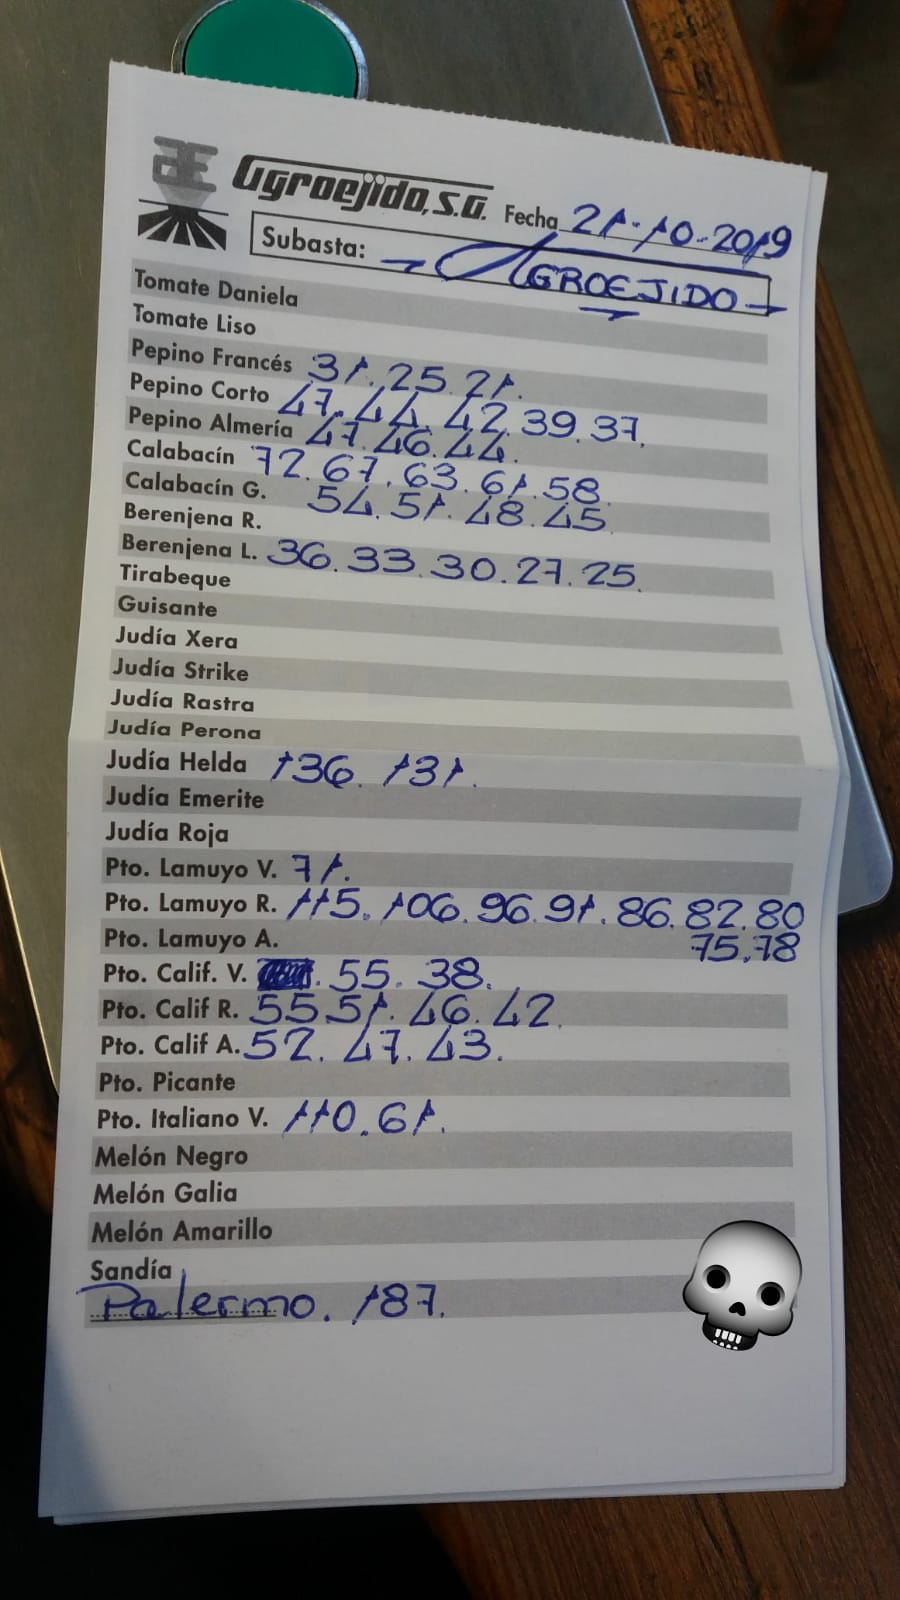 Agroejido, S.A. Fecha 21-10-2019
Subasta: AGROEJIDO
Tomate Daniela
Tomate Liso
Pepino Francés 31.25.21.
Pepino Corto 47.44.42.39.37.
Pepino Almería 47.46.44.
Calabacín 72.67.63.61.58.
Calabacín G. 54.51.48.45
Berenjena R.
Berenjena L. 36.33.30.27.25.
Tirabeque
Guisante
Judía Xera
Judía Strike
Judía Rastra
Judía Perona
Judía Helda 136. 131.
Judía Emerite
Judía Roja
Pto. Lamuyo V. 71.
Pto. Lamuyo R. 115.106.96.91.86.82.80
Pto. Lamuyo A. 75.78
Pto. Calif. V. .55.38.
Pto. Calif R. 55.51.46.42.
Pto. Calif A. 52.47.43.
Pto. Picante
Pto. Italiano V. 110.61.
Melón Negro
Melón Galia
Melón Amarillo
Sandía
Palermo. 187.